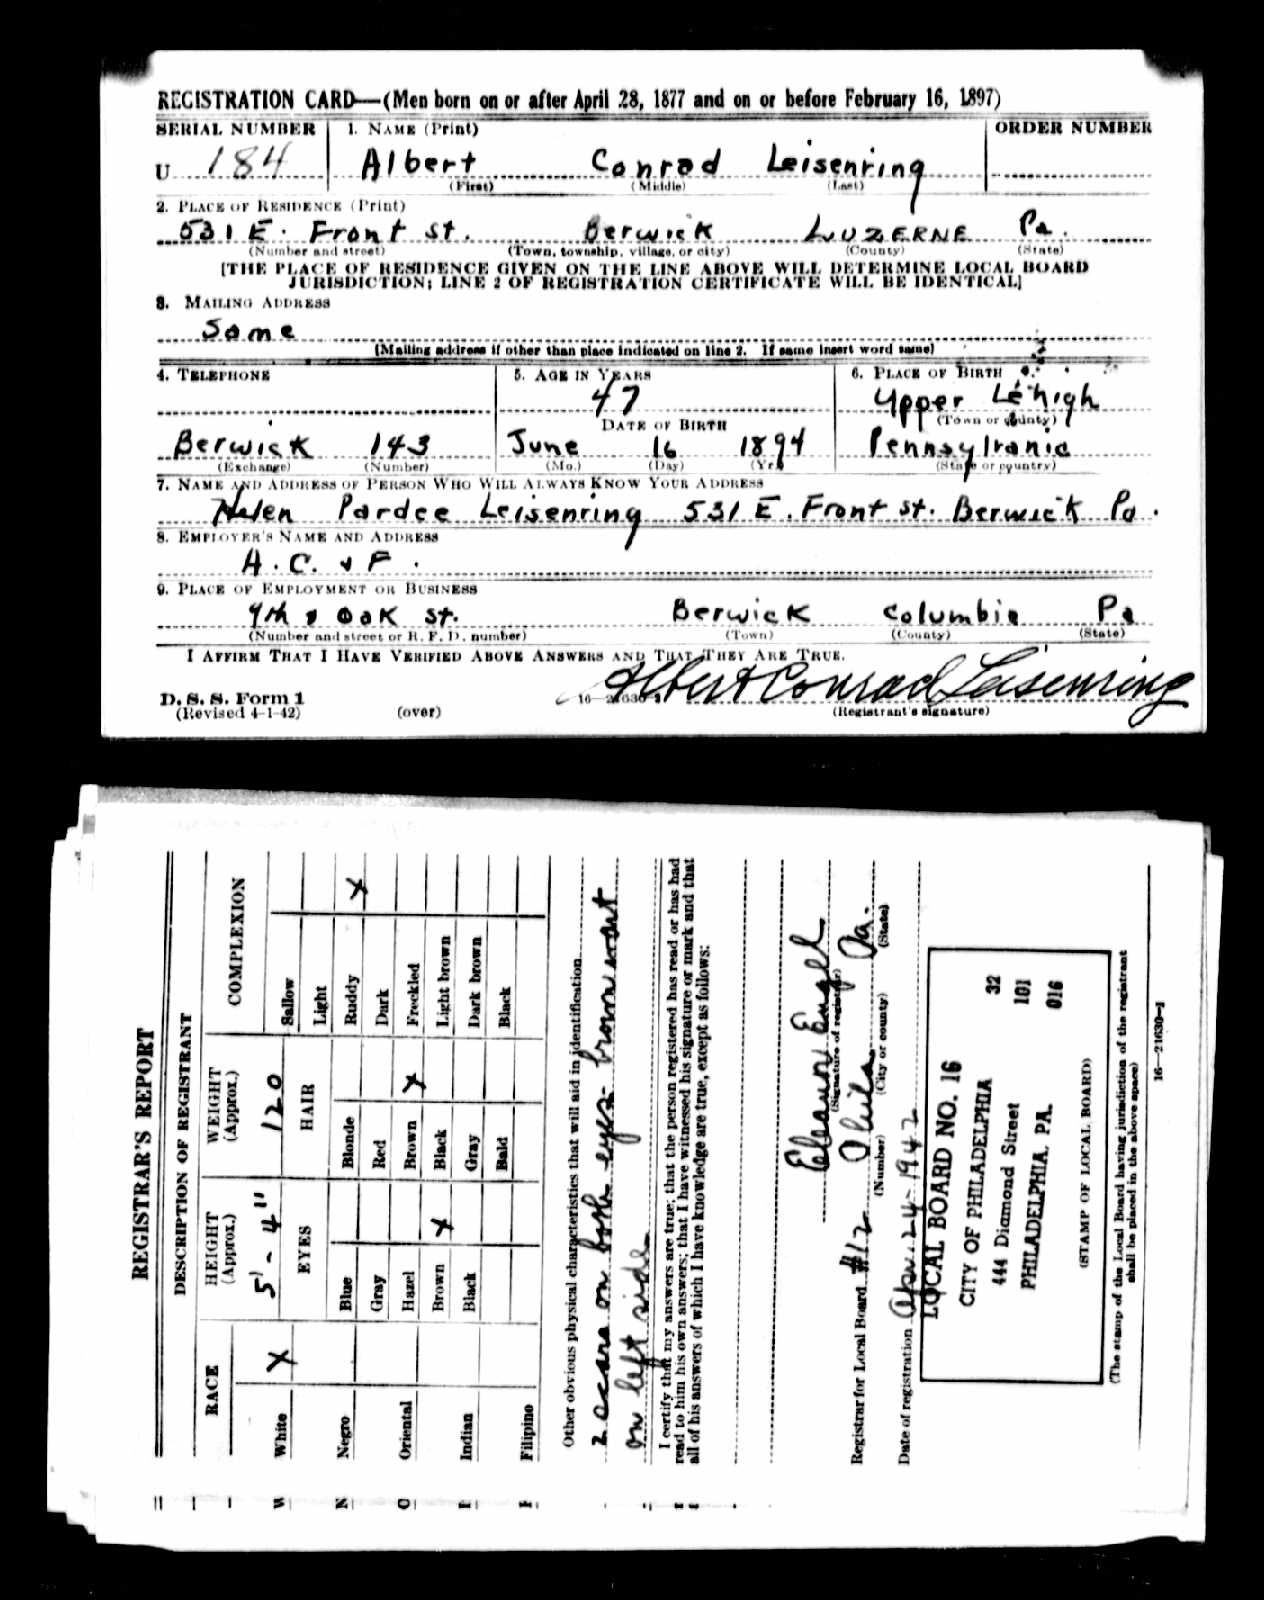 REGISTRATION CARD—(Men born on or after April 28, 1877 and on or before February 16, 1897)
SERIAL NUMBER 1. NAME (Print) ORDER NUMBER
U 184 Albert Conrad Leisenring
(First) (Middle) (Last)
2. PLACE OF RESIDENCE (Print)
531 E. Front St. Berwick LUZERNE Pa.
(Number and street) (Town, township, village, or city) (County) (State)
[THE PLACE OF RESIDENCE GIVEN ON THE LINE ABOVE WILL DETERMINE LOCAL BOARD
JURISDICTION; LINE 2 OF REGISTRATION CERTIFICATE WILL BE IDENTICAL]
3. MAILING ADDRESS
Same
[Mailing address if other than place indicated on line 2. If same insert word same]
4. TELEPHONE 5. AGE IN YEARS 6. PLACE OF BIRTH
47 Upper Lehigh
DATE OF BIRTH (Town or county)
Berwick 143 June 16 1894 Pennsylvania
(Exchange) (Number) (Mo.) (Day) (Yr.) (State or country)
7. NAME AND ADDRESS OF PERSON WHO WILL ALWAYS KNOW YOUR ADDRESS
Helen Pardee Leisenring 531 E. Front St. Berwick Pa.
8. EMPLOYER'S NAME AND ADDRESS
A. C. & F.
9. PLACE OF EMPLOYMENT OR BUSINESS
9th & Oak St. Berwick Columbia Pa
(Number and street or R. F. D. number) (Town) (County) (State)
I AFFIRM THAT I HAVE VERIFIED ABOVE ANSWERS AND THAT THEY ARE TRUE.
D. S. S. Form 1 16—21630-2 Albert Conrad Leisenring
(Revised 4-1-42) (over) (Registrant's signature)
REGISTRAR'S REPORT
DESCRIPTION OF REGISTRANT
RACE HEIGHT (Approx.) WEIGHT (Approx.) COMPLEXION
White X 5' - 4" 120 Sallow
EYES HAIR Light
Negro Blue Blonde Ruddy X
Gray Red Dark
Oriental Hazel Brown X Freckled
Brown X Black Light brown
Indian Black Gray Dark brown
Bald Black
Filipino
Other obvious physical characteristics that will aid in identification
2 scars on both eyes - brown wart
on left side
I certify that my answers are true; that the person registered has read or has had
read to him his own answers; that I have witnessed his signature or mark and that
all of his answers of which I have knowledge are true, except as follows:
Eleanor Engell
(Signature of registrar)
Registrar for Local Board #12 Phila Pa.
(Number) (City or county) (State)
Date of registration Apr. 24-1942
LOCAL BOARD NO. 16 32
CITY OF PHILADELPHIA 101
444 Diamond Street 016
PHILADELPHIA, PA.
(STAMP OF LOCAL BOARD)
(The stamp of the Local Board having jurisdiction of the registrant
shall be placed in the above space)
16—21630-1